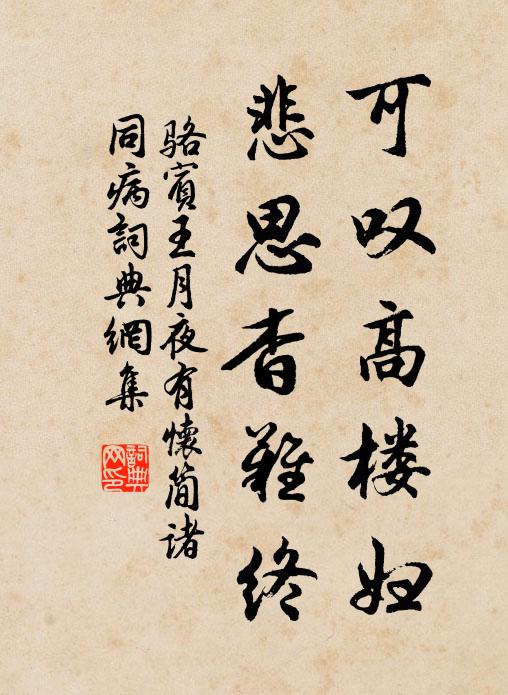 可叹高楼妇
悲思杳难终
骆宾王月夜有怀简诸
同病词典網集
詞典
网印